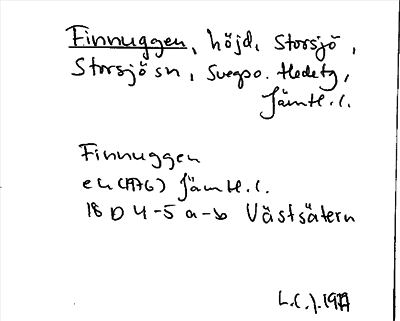 Finnuggen, höjd, Storsjö,
Storsjö sn, Svegs o. Hedetg,
Jämtl. l.
Finnuggen
ek (1976) Jämtl. l.
18 D 4-5 a-b Västsätern
1977